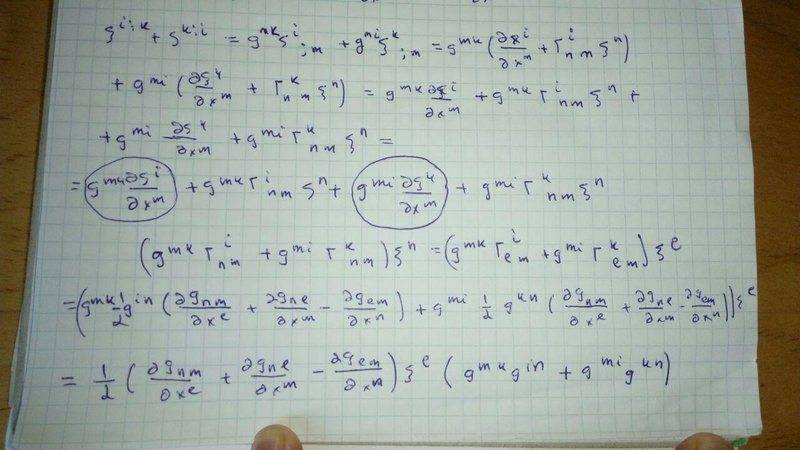 ξ^{i;k} + ξ^{k;i} = g^{mk} ξ^i_{;m} + g^{mi} ξ^k_{;m} = g^{mk} (∂ξ^i/∂x^m + Γ^i_{nm} ξ^n)
+ g^{mi} (∂ξ^k/∂x^m + Γ^k_{nm} ξ^n) = g^{mk} ∂ξ^i/∂x^m + g^{mk} Γ^i_{nm} ξ^n +
+ g^{mi} ∂ξ^k/∂x^m + g^{mi} Γ^k_{nm} ξ^n =
= g^{mk} ∂ξ^i/∂x^m + g^{mk} Γ^i_{nm} ξ^n + g^{mi} ∂ξ^k/∂x^m + g^{mi} Γ^k_{nm} ξ^n
(g^{mk} Γ^i_{nm} + g^{mi} Γ^k_{nm}) ξ^n = (g^{mk} Γ^i_{em} + g^{mi} Γ^k_{em}) ξ^e
= (g^{mk} 1/2 g^{in} (∂g_{nm}/∂x^e + ∂g_{ne}/∂x^m - ∂g_{em}/∂x^n) + g^{mi} 1/2 g^{kn} (∂g_{nm}/∂x^e + ∂g_{ne}/∂x^m - ∂g_{em}/∂x^n)) ξ^e
= 1/2 (∂g_{nm}/∂x^e + ∂g_{ne}/∂x^m - ∂g_{em}/∂x^n) ξ^e (g^{mk} g^{in} + g^{mi} g^{kn})